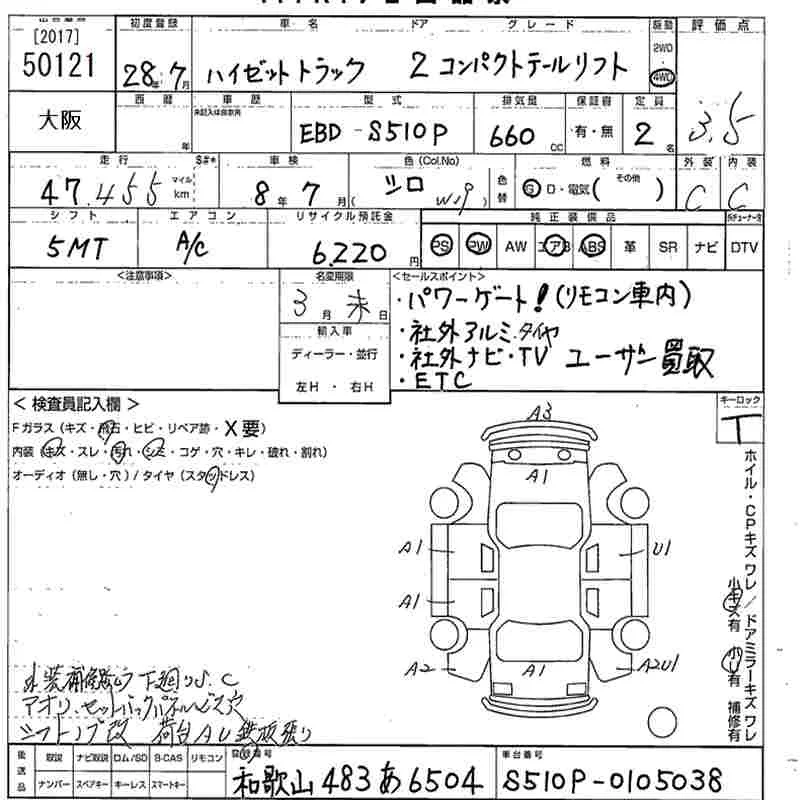 [2017]
50121
初度登録
28年7月
車名 ドア グレード
ハイゼットトラック 2 コンパクトテールリフト
駆動
2WD
4WD
評価点
3.5
大阪
西暦
年
車歴
未記入は自家用
型式
EBD-S510P
排気量
660 CC
保証書
有・無
定員
2名
走行 S#*
47,455 マイル km
車検
8年7月
色(Col.No)
シロ
( W19 )
色替
燃料
G D・電気( その他 )
外装 内装
C C
シフト
5MT
エアコン
A/C
リサイクル預託金
6,220円
純正装備品
PS PW AW エアB ABS 革 SR ナビ DTV
<注意事項>
名変期限
3月末日
輸入車
ディーラー・並行
左H・右H
<セールスポイント>
・パワーゲート!(リモコン車内)
・社外アルミ.タイヤ
・社外ナビ・TV ユーザー買取
・ETC
<検査員記入欄>
Fガラス(キズ・飛石・ヒビ・リペア跡・X要)
内装(キズ・スレ・汚れ・シミ・コゲ・穴・キレ・破れ・割れ)
オーディオ(無し・穴)/タイヤ(スタッドレス)
キーロック
T
A3
A1
A1
U1
A1
A2
A1
A2U1
ホイル・CPキズ ワレ/ドアミラーキズ ワレ
小キズ有 小U有 補修有
下廻りS.C
アオリ、セットバックパネルビス穴
シフトノブ改 荷台AU鉄板張り
後送品
取説 ナビ取説 ロム/SD B-CAS リモコン
ナンバー スペアキー キーレス スマートキー
登録番号
和歌山 483 あ 6504
車台番号
S510P-0105038